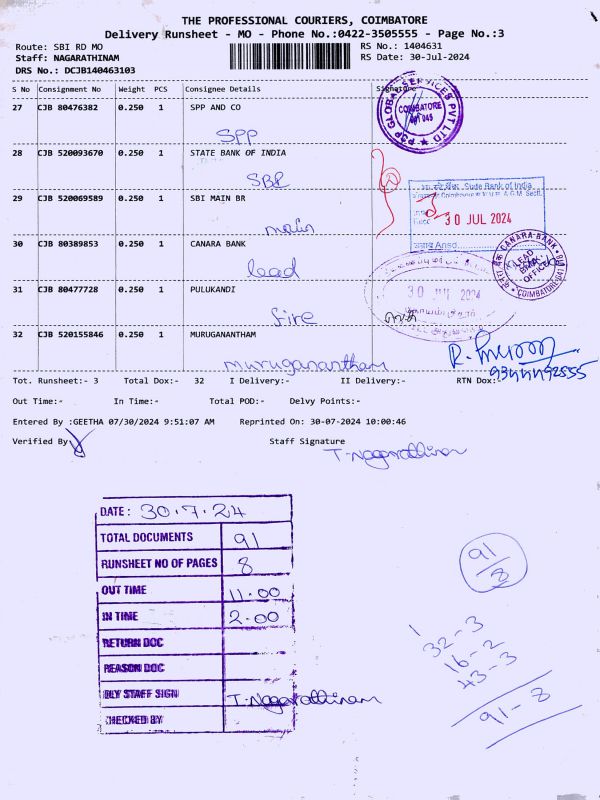 THE PROFESSIONAL COURIERS, COIMBATORE
Delivery Runsheet - MO - Phone No.:0422-3505555 - Page No.:3
Route: SBI RD MO
RS No.: 1404631
Staff: NAGARATHINAM
RS Date: 30-Jul-2024
DRS No.: DCJB140463103
S No Consignment No Weight PCS Consignee Details Signature
27 CJB 80476382 0.250 1 SPP AND CO
SPP
28 CJB 520093670 0.250 1 STATE BANK OF INDIA
SBI
29 CJB 520069589 0.250 1 SBI MAIN BR
main
30 CJB 80389853 0.250 1 CANARA BANK
lead
31 CJB 80477728 0.250 1 PULUKANDI
fire
32 CJB 520155846 0.250 1 MURUGANANTHAM
muruganantham
PSP GLOBAL SERVICES PVT LTD
COIMBATORE
641 045
State Bank of India
30 JUL 2024
CANARA BANK
LEAD BANK OFFICE
COIMBATORE
30 2024
9344492555
Tot. Runsheet:- 3 Total Dox:- 32 I Delivery:- II Delivery:- RTN Dox:-
Out Time:- In Time:- Total POD:- Delvy Points:-
Entered By :GEETHA 07/30/2024 9:51:07 AM Reprinted On: 30-07-2024 10:00:46
Verified By Staff Signature
T. Nagarathinam
DATE: 30.7.24
TOTAL DOCUMENTS 91
RUNSHEET NO OF PAGES 8
OUT TIME 11.00
IN TIME 2.00
RETURN DOC
REASON DOC
DLY STAFF SIGN T. Nagarathinam
CHECKED BY
91/8
1
32-3
16-2
43-3
91-8